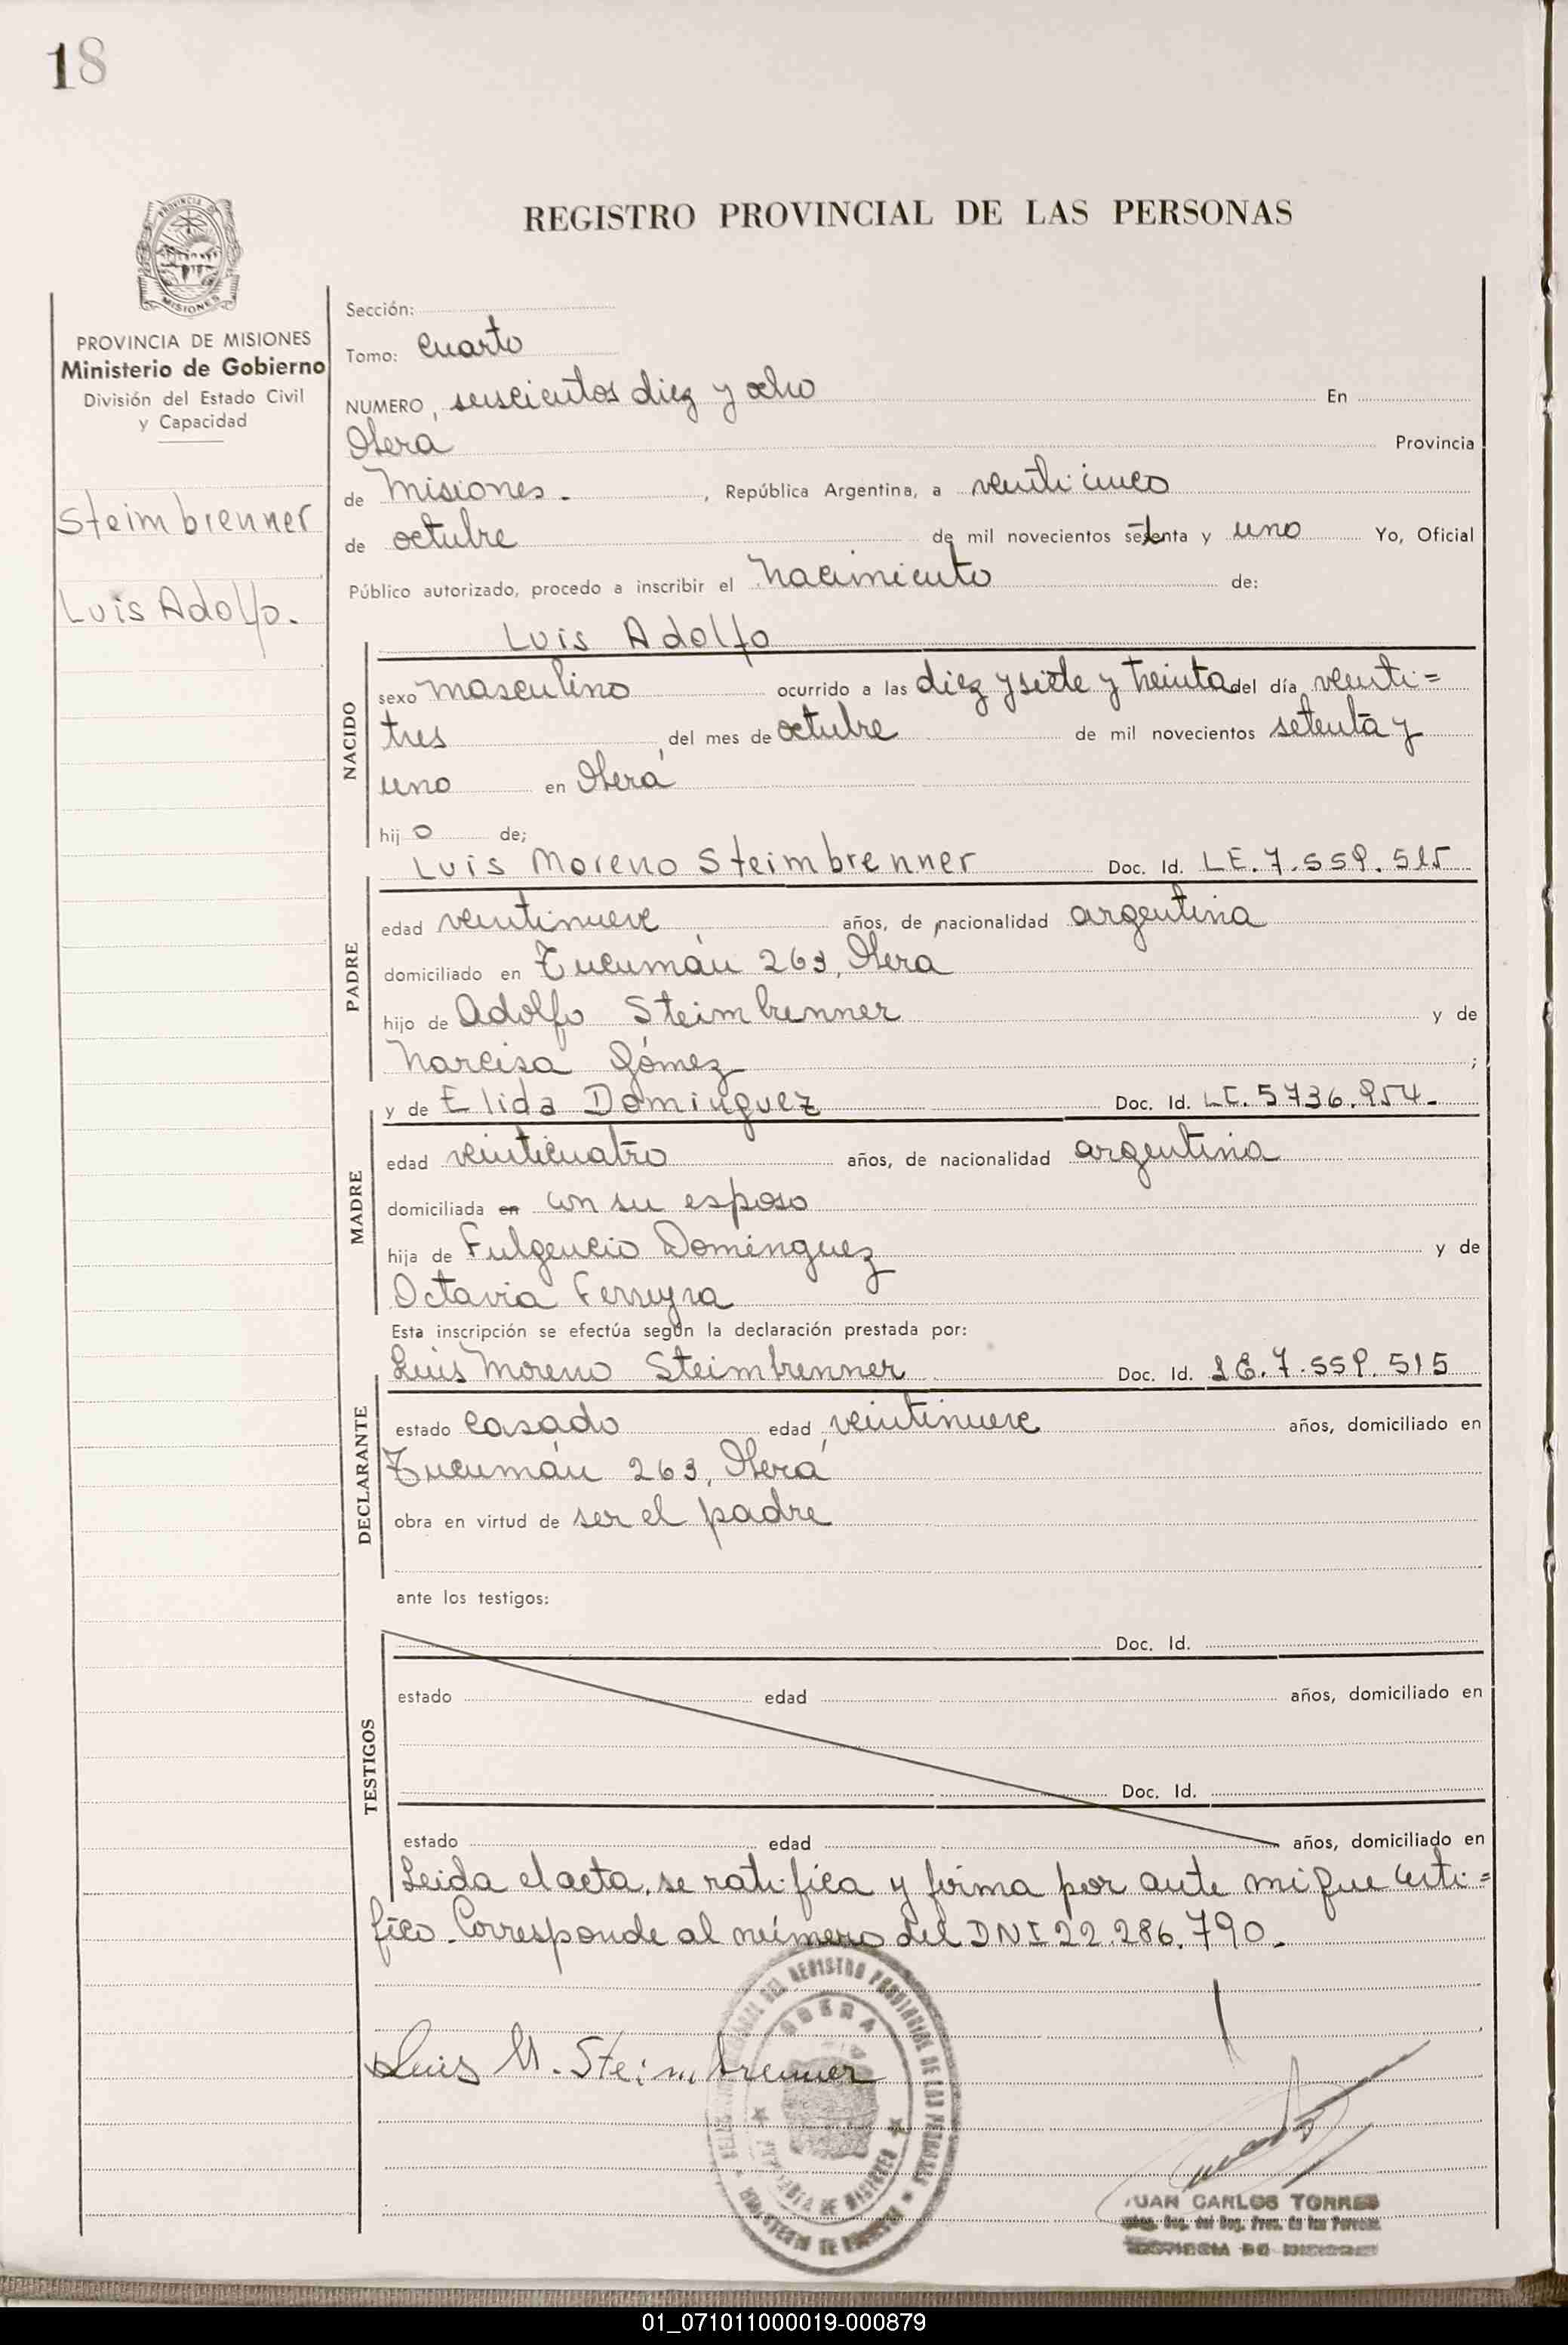 18
REGISTRO PROVINCIAL DE LAS PERSONAS
MISIONES
PROVINCIA DE MISIONES
Ministerio de Gobierno
División del Estado Civil
y Capacidad
Steimbrenner
Luis Adolfo.
Sección:
Tomo: Cuarto
NUMERO, seiscientos diez y ocho En
Oberá Provincia
de Misiones. , República Argentina, a veinticinco
de octubre de mil novecientos setenta y uno Yo, Oficial
Público autorizado, procedo a inscribir el Nacimiento de:
Luis Adolfo
NACIDO
sexo masculino ocurrido a las diez y siete y treinta del día veinti=
tres del mes de octubre de mil novecientos setenta y
uno en Oberá
hijo de;
Luis Moreno Steimbrenner Doc. Id. L.E. 7.559.515
PADRE
edad veintinueve años, de nacionalidad argentina
domiciliado en Tucumán 263, Oberá
hijo de Adolfo Steimbrenner y de
Narcisa Gómez ;
y de Elida Dominguez Doc. Id. L.C. 5736.954.
MADRE
edad veinticuatro años, de nacionalidad argentina
domiciliada en con su esposo
hija de Fulgencio Dominguez y de
Octavia Ferreyra
Esta inscripción se efectúa según la declaración prestada por:
Luis Moreno Steimbrenner Doc. Id. L.E. 7.559.515
DECLARANTE
estado casado edad veintinueve años, domiciliado en
Tucumán 263, Oberá
obra en virtud de ser el padre
ante los testigos:
Doc. Id.
TESTIGOS
estado edad años, domiciliado en
Doc. Id.
estado edad años, domiciliado en
Leida el acta, se ratifica y firma por ante mi que certi=
fico. Corresponde al número del DNI 22.286.790.
DEL REGISTRO PROVINCIAL DE LAS PERSONAS
OBERA
PROVINCIA DE MISIONES
MINISTERIO DE GOBIERNO
Luis M. Steimbrenner
JUAN CARLOS TORRES
PROVINCIA DE MISIONES
01_071011000019-000879